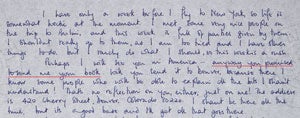 I have only a week before I fly to New York, so life is
somewhat hectic at the moment. I met some very nice people on
the trip to Berlin, and this week is full of parties given by them.
I shan't really go to them, as I am too tired and I have other
things to do, but I rarely do what I should, so this week is a rush.
Perhaps I will see you in America. Anyway you promised
to lend me your book but you lend it to Denver, because there I
know some people who will be able to explain all the bits I shan't
understand! That's no reflection on you either, just on me! The address
is 420 Cherry Street, Denver, Colorado 70220. I shan't be there all the
time, but it's a good base and I'll get all that goes there.